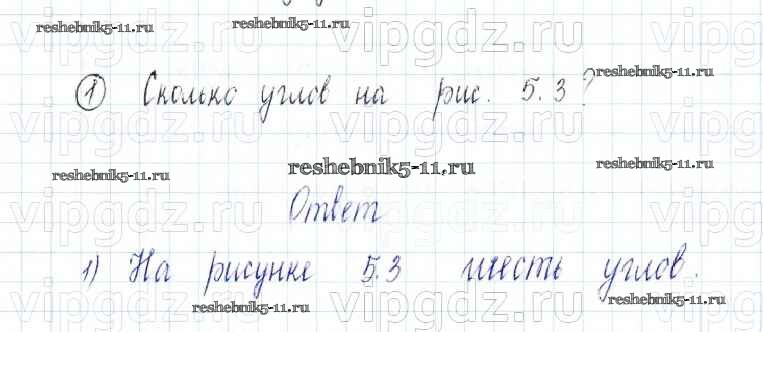 reshebnik5-11.ru reshebnik5-11.ru
vipgdz.ru vipgdz.ru
① Сколько углов на рис. 5.3?
reshebnik5-11.ru
vipgdz.ru vipgdz.ru vipg
reshebnik5-11.ru reshebnik5-11.ru reshebnik5-11.ru
Ответ
vipgdz.ru vipgdz.ru vipg
1) На рисунке 5.3 шесть углов.
reshebnik5-11.ru reshebnik5-11.ru
vipgdz.ru vipgdz.ru vipg